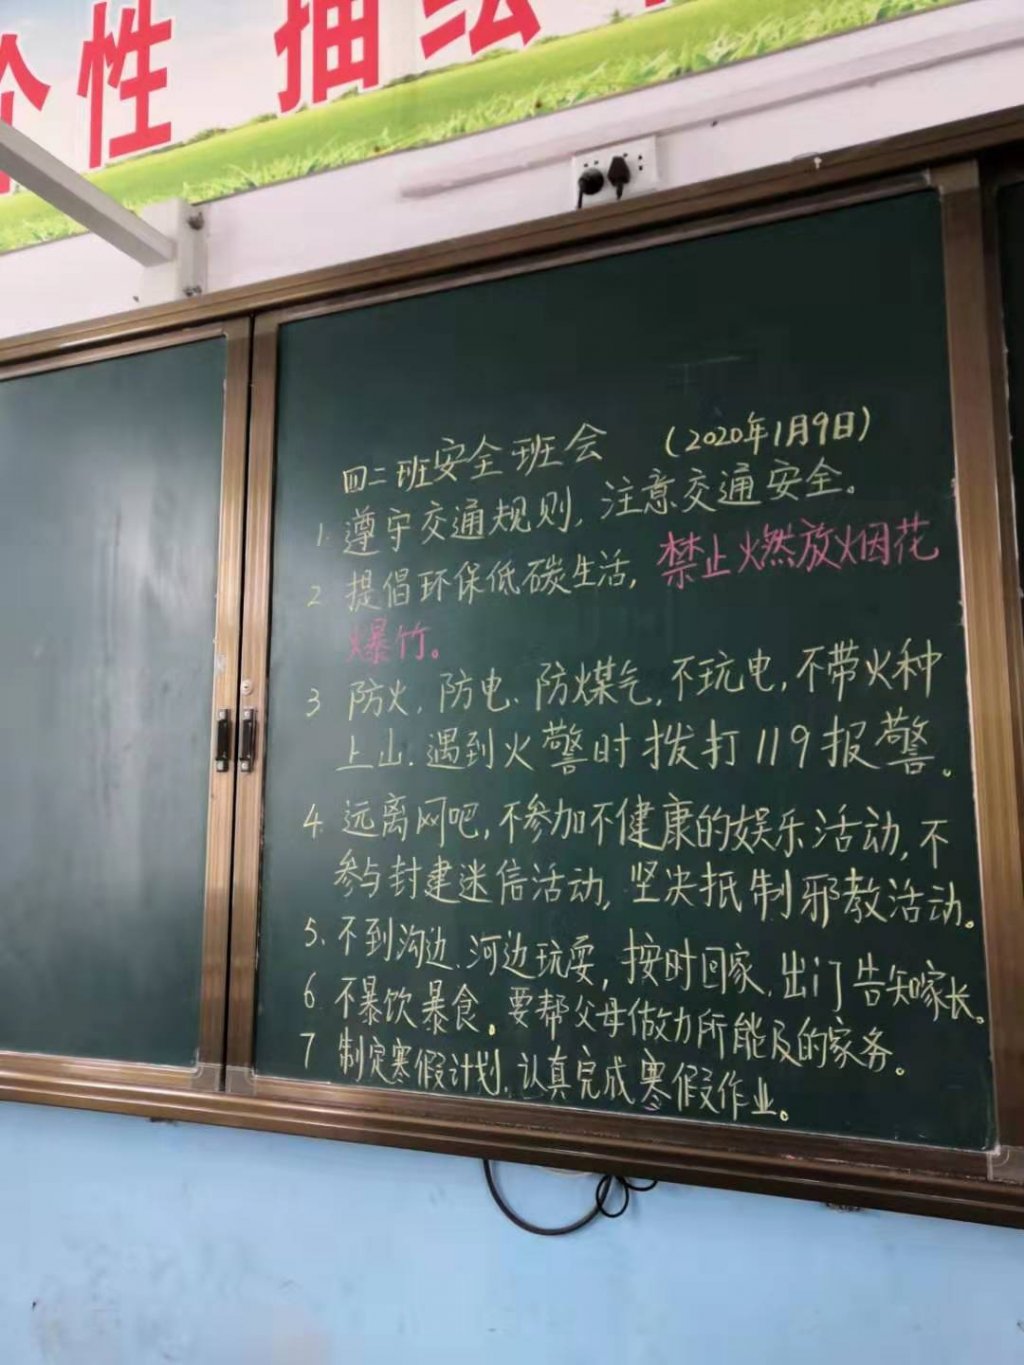 个性 描绘
四二班安全班会 （2020年1月9日）
1. 遵守交通规则，注意交通安全。
2 提倡环保低碳生活，禁止燃放烟花
爆竹。
3 防火，防电、防煤气，不玩电，不带火种
上山．遇到火警时拨打119报警。
4. 远离网吧，不参加不健康的娱乐活动，不
参与封建迷信活动，坚决抵制邪教活动。
5. 不到沟边、河边玩耍，按时回家，出门告知家长。
6. 不暴饮暴食。要帮父母做力所能及的家务。
7 制定寒假计划，认真完成寒假作业。